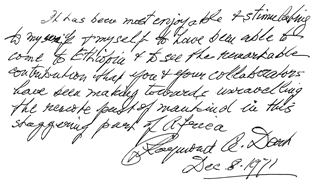 It has been most enjoyable & stimulating
to my wife & myself to have been able to
come to Ethiopia & to see the remarkable
contribution that you & your collaborators
have been making towards unravelling
the remote past of mankind in this
staggering part of Africa
Raymond A. Dart
Dec. 8. 1971